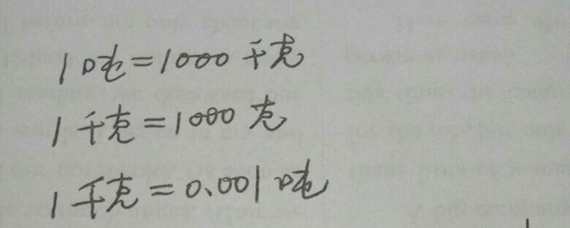 1吨=1000千克
1千克=1000克
1千克=0.001吨